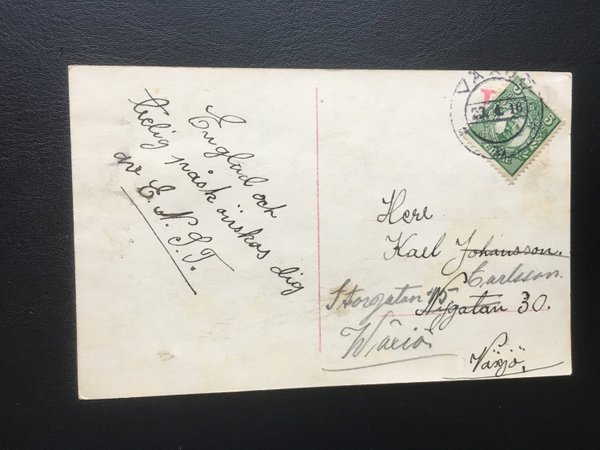 En glad och
trelig påsk önskas dig
av E. N. S. T.
VÄXJÖ
23.4.16
5
5
Herr
Karl Johansson.
Carlsson.
Storgatan 45
Nygatan 30.
Wäxiö
Växjö.